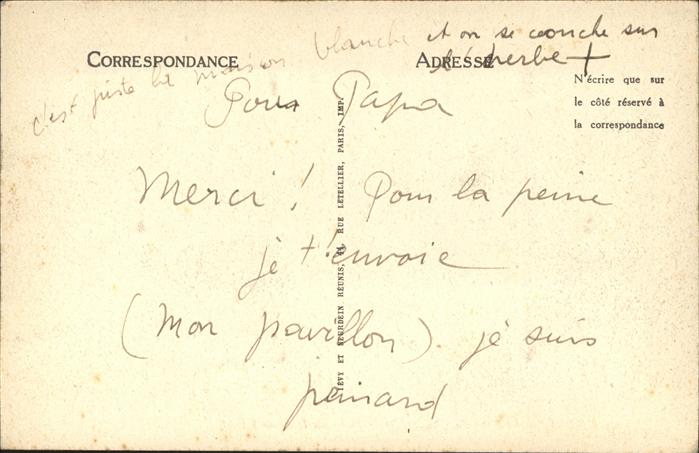 c'est juste la maison blanche et on se couche sur
l'herbe +
CORRESPONDANCE
ADRESSE
N'écrire que sur
le côté réservé à
la correspondance
Pour Papa
Merci ! Pour la peine
je t'envoie
(mon pavillon). je suis
peinard
LÉVY ET NEURDEIN RÉUNIS, 44, RUE LETELLIER, PARIS, IMP.